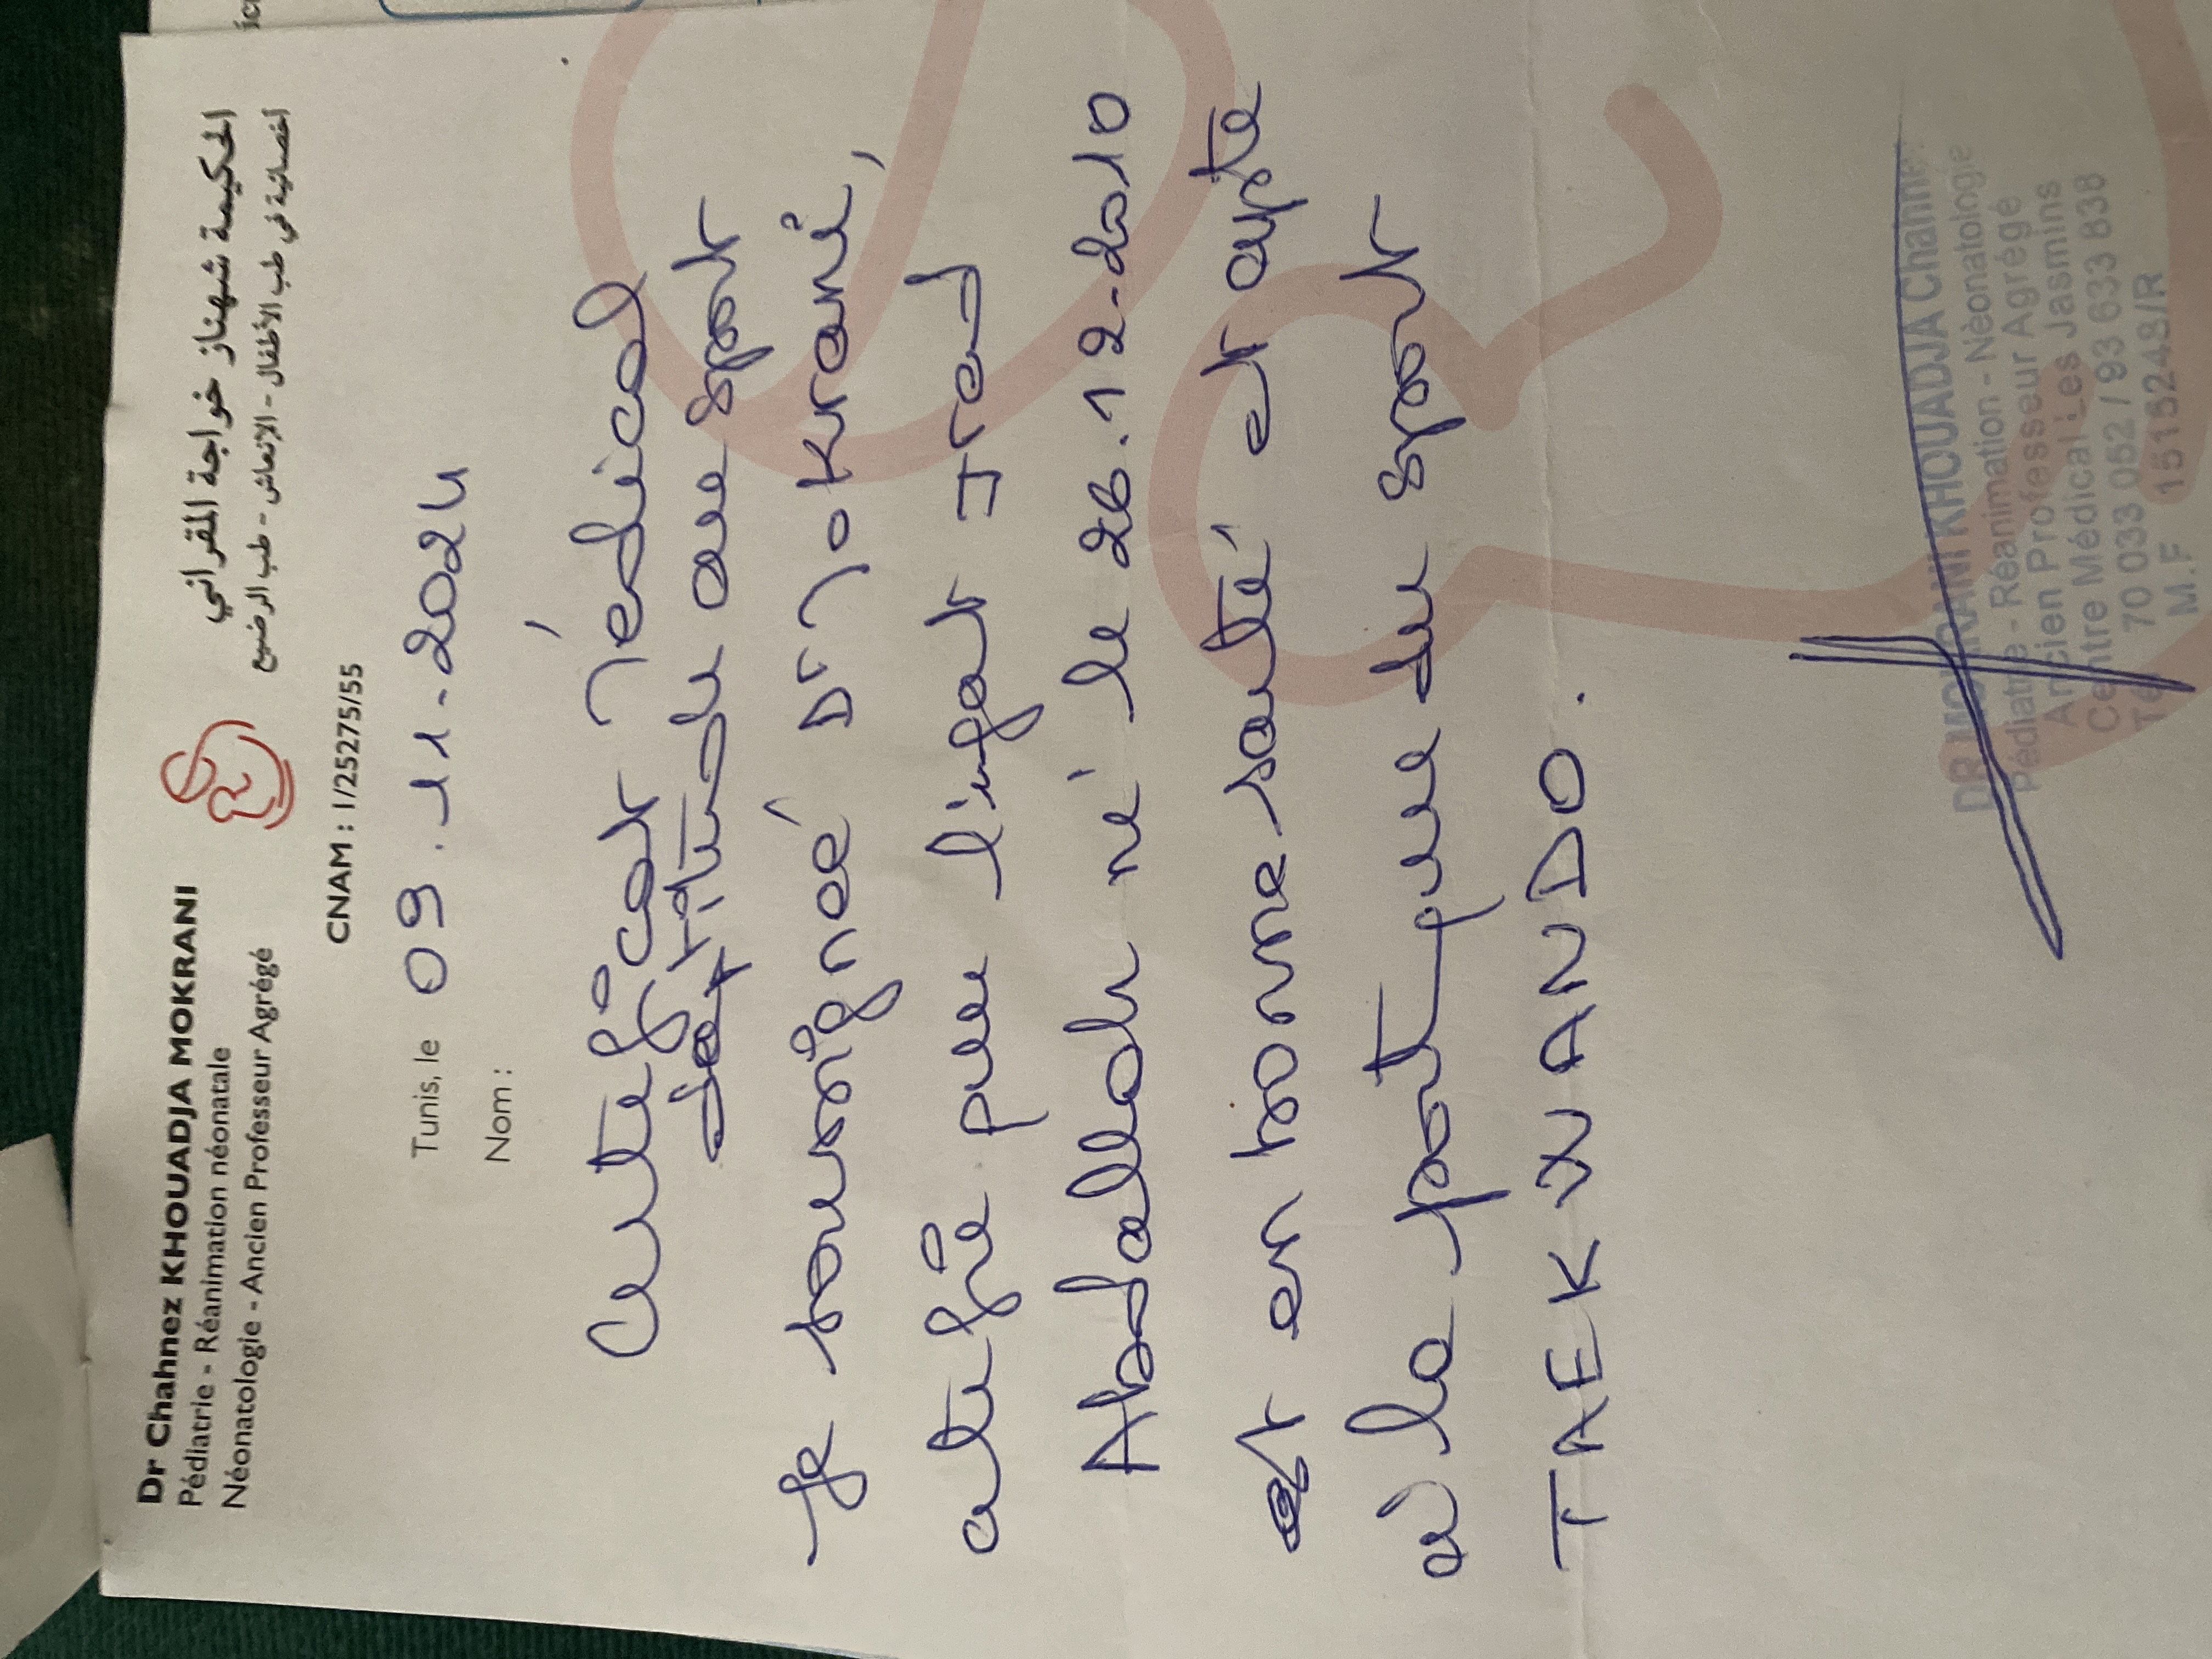 Dr Chahnez KHOUADJA MOKRANI
Pédiatrie - Réanimation néonatale
Néonatologie - Ancien Professeur Agrégé
الحكيمة شهناز خواجة المقراني
أخصائية في طب الأطفال - الإنعاش - طب الرضيع
CNAM : 1/25275/55
Tunis, le 09.11-2024
Nom :
Certificat Médical
d'aptitude au sport
Je soussigneé Dr Mokrani,
certifie que l'enfant Jrad
Abdallah né le 26.12-2010
est en bonne santé et apte
à la pratique du sport
TAEKWANDO.
DR MOKRANI KHOUADJA Chahnez
Pédiatrie - Réanimation - Nèonatologie
Ancien Professeur Agrégé
Centre Médical Les Jasmins
70 033 052 / 93 633 838
M.F